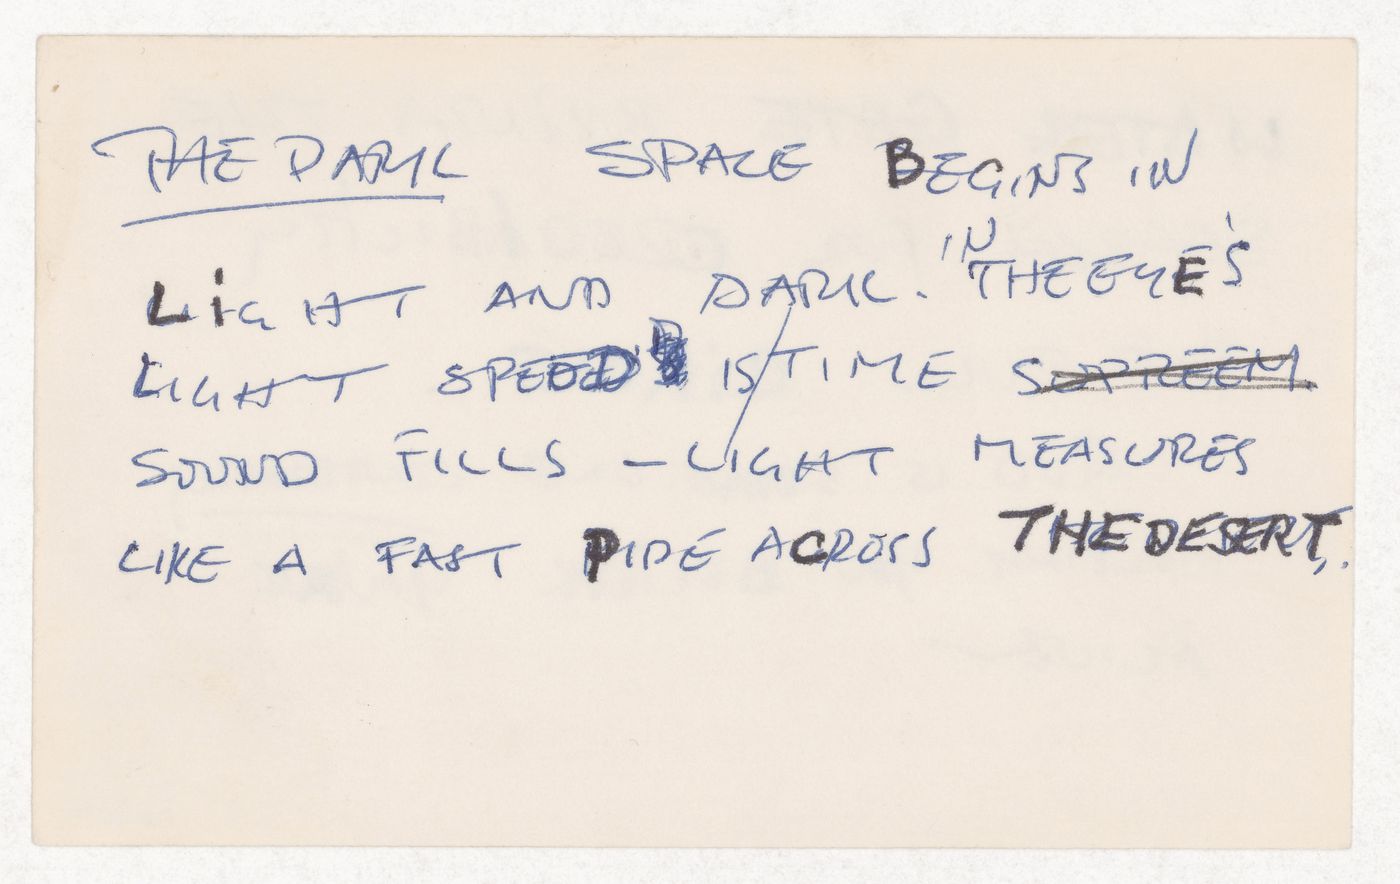 THE DARK SPACE BEGINS IN
LiGHT AND DARK. IN THE EYE'S
LIGHT SPEED IS TIME SUPREEM.
SOUND FILLS – LIGHT MEASURES
LIKE A FAST RIDE ACROSS THE DESERT.